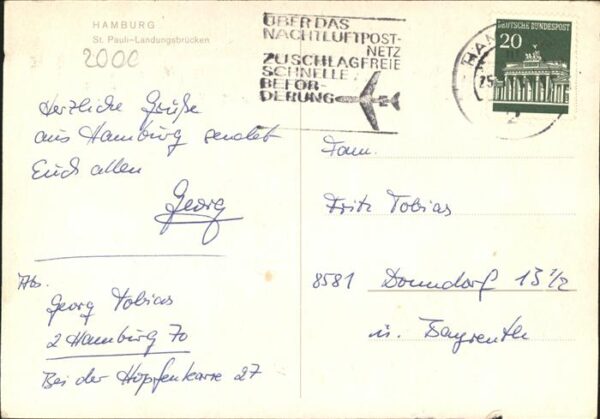 HAMBURG
St. Pauli-Landungsbrücken
2000
ÜBER DAS
NACHTLUFTPOST-
NETZ
ZUSCHLAGFREIE
SCHNELLE
BEFÖR-
DERUNG
DEUTSCHE BUNDESPOST
20
HAM
25
2
Herzliche Grüße
aus Hamburg sendet
Euch allen
Georg
Abs.
Georg Tobias
2 Hamburg 70
Bei der Hopfenkarre 27
Fam.
Fritz Tobias
8581 Donndorf 13 1/2
ü. Bayreuth